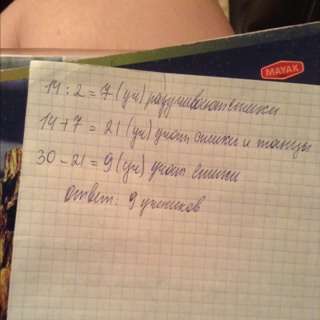 MAYAK
14 : 2 = 7 (уч) разучивают стихи
14 + 7 = 21 (уч) учат стихи и танцы
30 – 21 = 9 (уч) учат стихи
ответ: 9 учеников